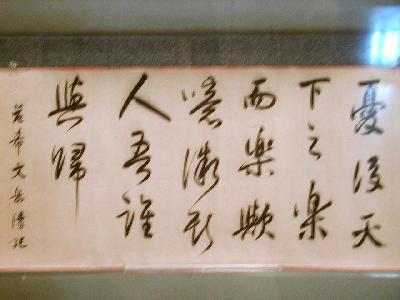 憂後天
下之樂
而樂歟
噫微斯
人吾誰
與歸
范希文岳陽記